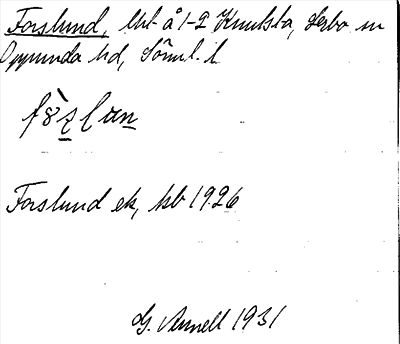 Forslund, lht å 1-2 Knutsta, Lerbo sn
Oppunda hd, Söml. l.
Forslund ek, kb 1926
G. Annell 1931